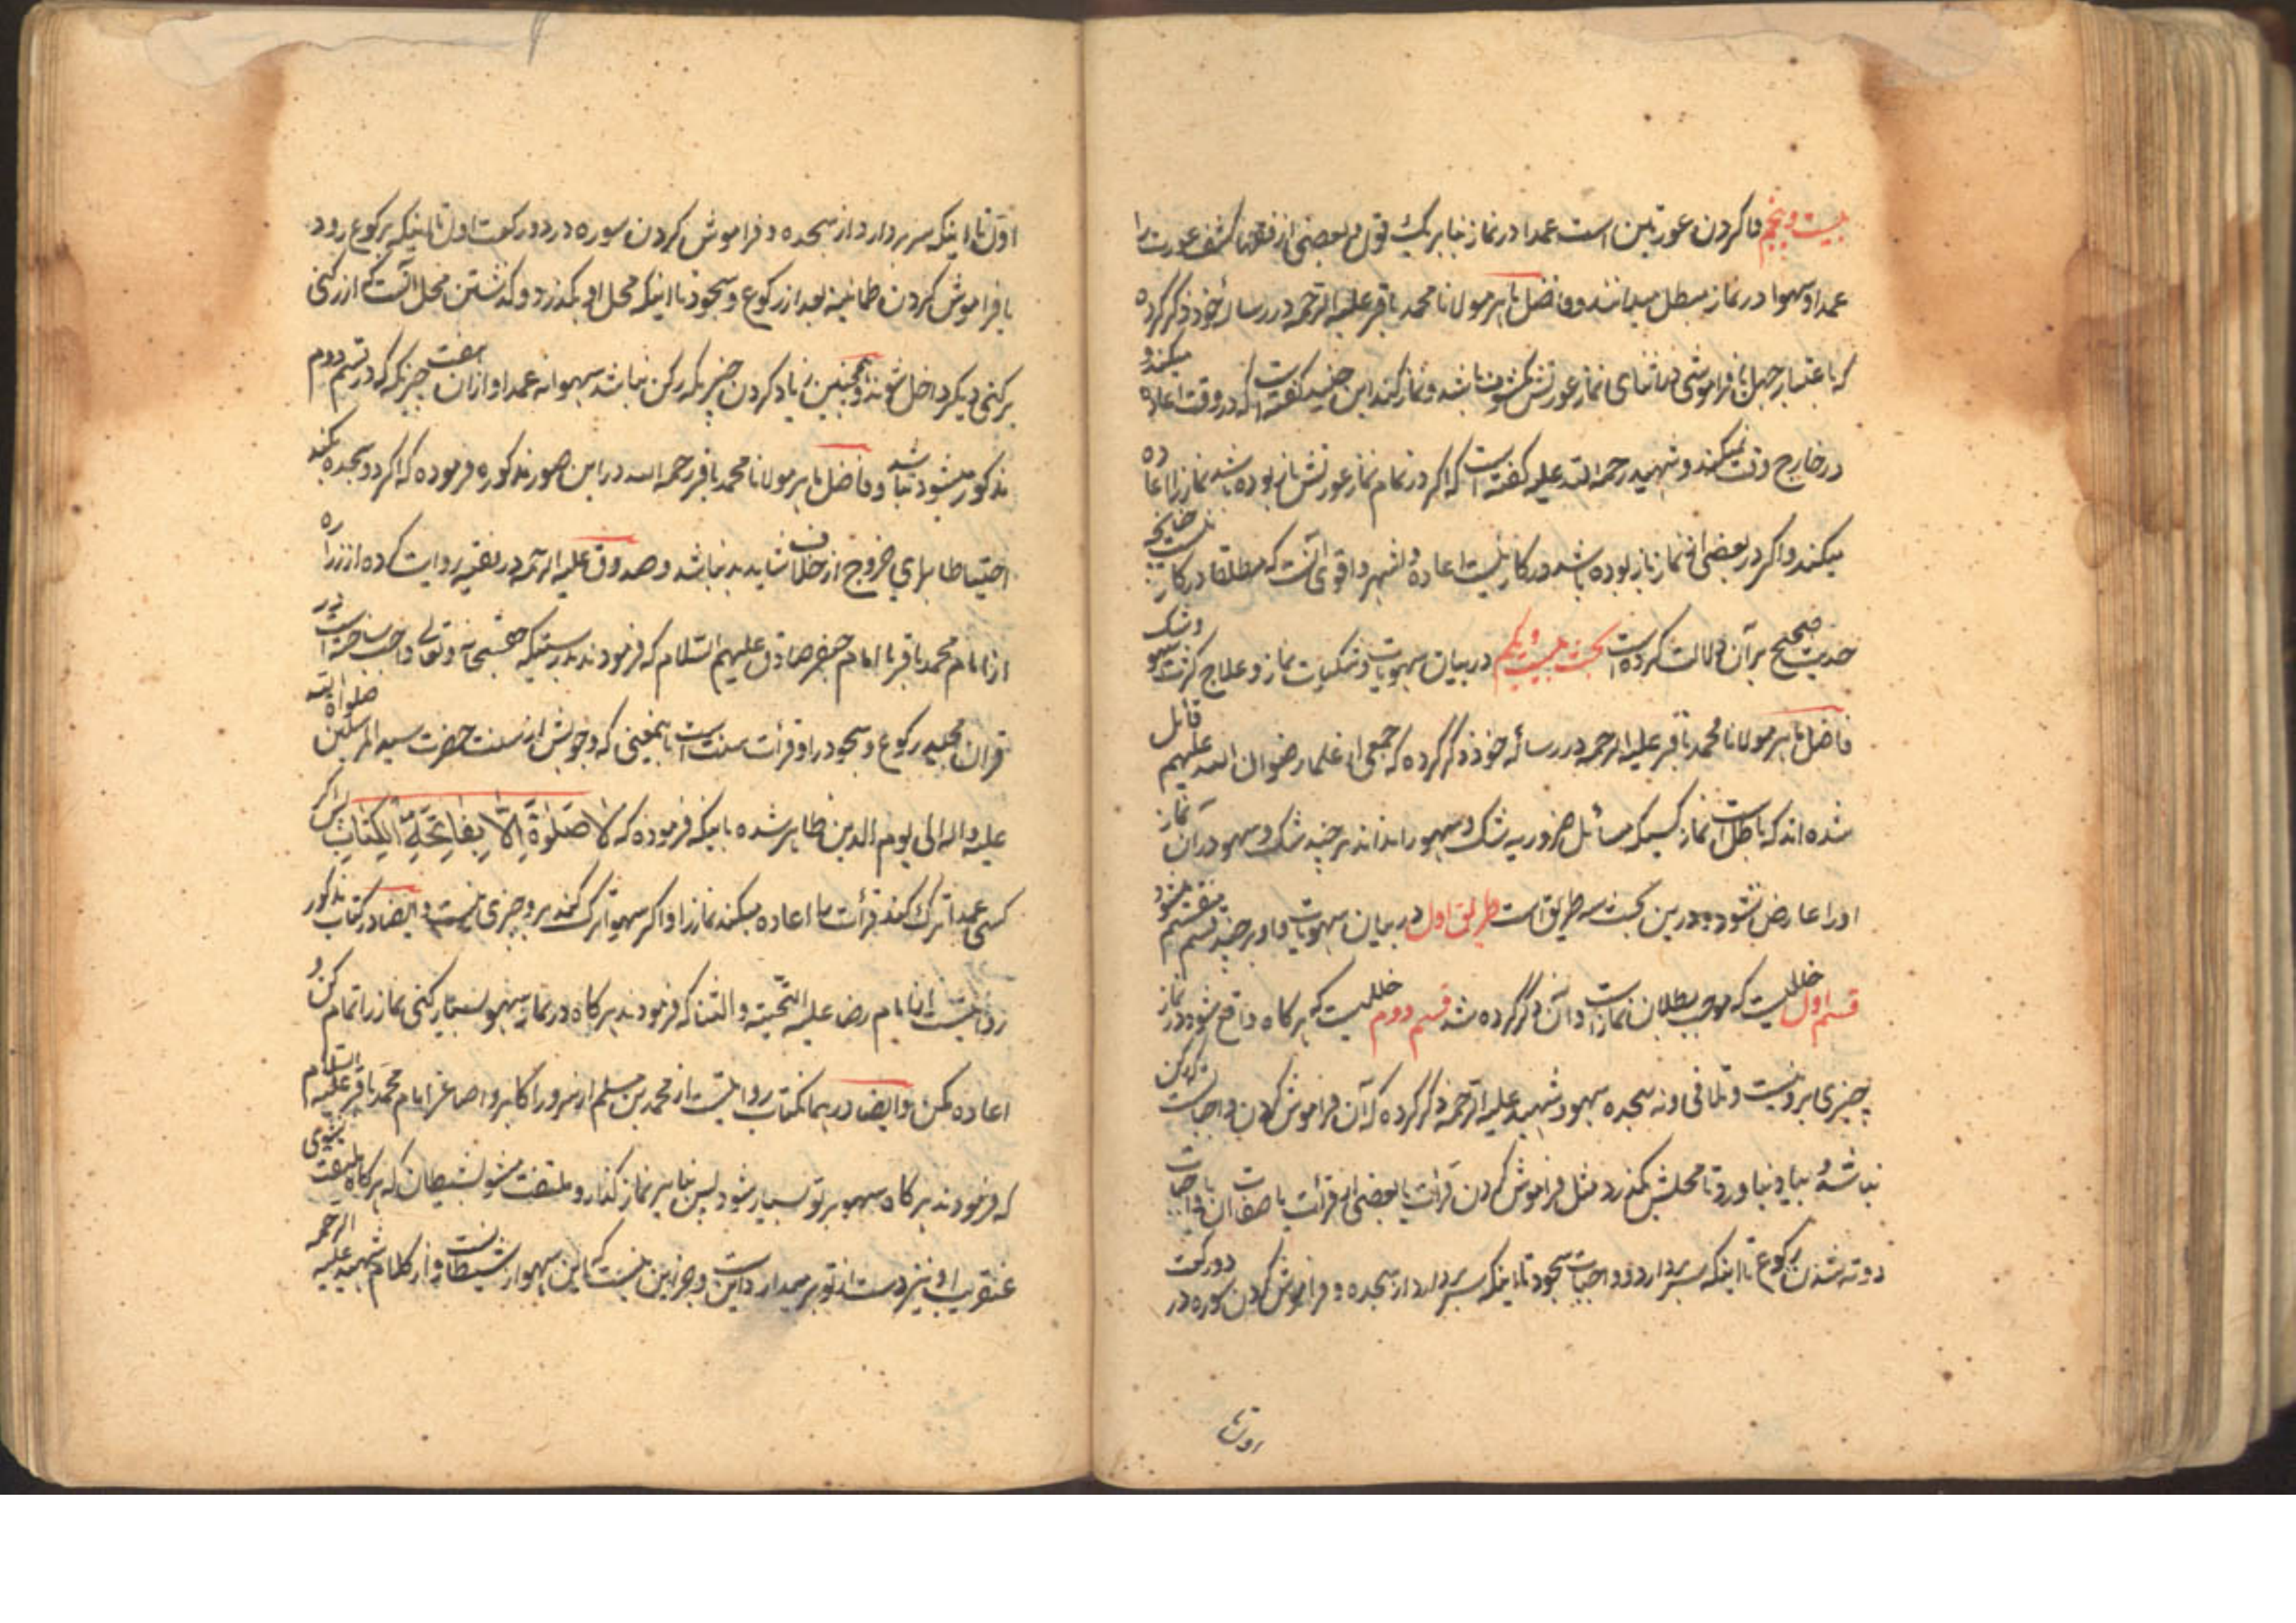 بیست و پنجم وا کردن عورتین است عمدا در نماز بنابر یک قول و بعضی از فقها کشف عورت را
عمدا و سهوا در نماز مبطل میدانند و فاضل ماهر مولانا محمد باقر علیه الرحمه در رساله خود ذکر کرده
که باعتبار جهل یا فراموشی در اثنای نماز عورتش مکشوف باشد و نماز کند ابن جنید گفته است که در وقت اعاده میکند و
در خارج وقت نمیکند و شهید رحمة الله علیه گفته است که اگر در تمام نماز عورتش باز بوده باشد نماز را اعاده
میکند و اگر در بعضی از نماز باز بوده باشد در کار نیست اعاده و اشهر و اقوی آنست که مطلقا در کار نیست چنانچه
حدیث صحیح بر آن دلالت کرده است بحث بیست و یکم در بیان سهویات و شکیات نماز و علاج کثرت سهو و شک
فاضل ماهر مولانا محمد باقر علیه الرحمه در رساله خود ذکر کرده که جمعی از علما رضوان الله علیهم قائل
شده اند که باطل است نماز کسیکه مسائل ضروریه شک و سهو را نداند هر چند شک و سهو در آن نماز
او را عارض نشود و درین بحث سه طریق است طریق اول در بیان سهویات و او بر چند قسم منقسم میشود
قسم اول خللیست که موجب بطلان نماز است و آن ذکر کرده شد قسم دوم خللیست که هر گاه واقع شود در نماز
چیزی برو نیست و تلافی و نه سجده سهو و شهید علیه الرحمه ذکر کرده که آن فراموش کردن واجباتست که رکن
نباشد و بیاد نیاورد تا محلش بگذرد مثل فراموش کردن قرائت یا بعضی از قرائت یا صفات آن یا واجبات
دوته شدن رکوع تا اینکه سر بردارد و واجبات سجود تا اینکه سر بردارد از سجده و فراموش کردن سوره در دو رکعت
اول تا
اول تا اینکه سر بردارد از سجده و فراموش کردن سوره در دو رکعت اول تا اینکه برکوع رود
یا فراموش کردن طمانینه بعد از رکوع و سجود تا اینکه محل او بگذرد و گذشتن محل آنست که از رکنی
برکنی دیگر داخل شوند و همچنین زیاد کردن چیزیکه رکن نباشد سهوا نه عمدا و از آن هفت چیزیکه که در قسم دوم
مذکور میشود نباشد و فاضل ماهر مولانا محمد باقر رحمه الله در این صور مذکوره فرموده که اگر دو سجده بکند
احتیاطا برای خروج از خلاف شاید بد نباشد و صدوق علیه الرحمه در فقیه روایت کرده از زراره
از امام محمد باقر یا امام جعفر صادق علیهم السلام که فرمودند بدرستیکه حق سبحانه و تعالی واجب ساخته است در
قرآن مجید رکوع و سجود را و قرائت سنت است باینمعنی که وجوبش از سنت حضرت سید المرسلین صلواة الله
علیه و اله الی یوم الدین ظاهر شده باینکه فرموده که لا صلوة الا بفاتحة الکتاب پس اگر
کسی عمدا ترک کند قرائت را اعاده میکند نماز را و اگر سهوا ترک کند برو چیزی نیست و ایضا در کتاب مذکور
روایتست از امام رضا علیه التحیة و الثنا که فرمودند هر گاه در نماز سهو بسیار کنی نماز را تمام کن و
اعاده مکن و ایضا در همانکتاب روایتست از محمد بن مسلم از سرور اکابر و اصاغر امام محمد باقر علیه السلام
که فرمودند هر گاه سهو بر تو بسیار شود پس بنا بر نماز گذار و ملتفت مشو بشیطان که هر گاه ملتفت نشوی
عنقریب او نیز دست از تو بر میدارد و این است و جز این نیست که این سهو از شیطانست و از کلام شهید علیه الرحمه